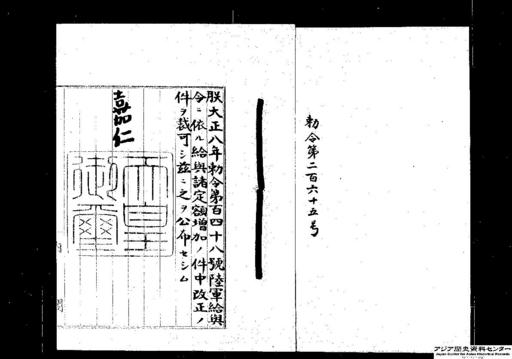 勅令第二百六十五号
朕大正八年勅令第百四十八號陸軍給與
令ニ依ル給與諸定額增加ノ件中改正ノ
件ヲ裁可シ茲ニ之ヲ公布セシム
嘉仁
天皇
御璽
アジア歴史資料センター
Japan Center for Asian Historical Records